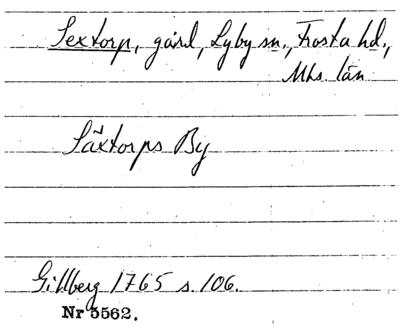 Sextorp, gård, Lyby sn., Frosta hd.,
Mhs län
Säxtorps By
Gillberg 1765 s. 106.
Nr 5562.